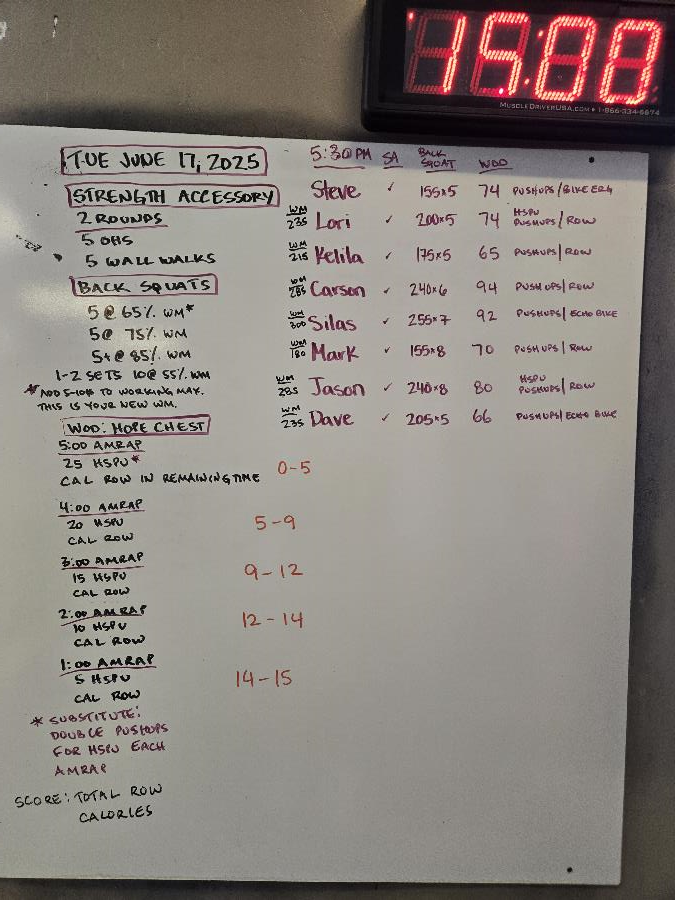 15:00
MUSCLEDRIVERUSA.COM • 1-866-334-6874
TUE JUNE 17, 2025
STRENGTH ACCESSORY
2 ROUNDS
5 OHS
5 WALL WALKS
BACK SQUATS
5 @ 65% WM*
5@ 75% WM
5+@ 85% WM
1-2 SETS 10@ 55% WM
* ADD 5-10# TO WORKING MAX.
THIS IS YOUR NEW WM.
WOD: HOPE CHEST
5:00 AMRAP
25 HSPU*
CAL ROW IN REMAINING TIME 0-5
4:00 AMRAP
20 HSPU 5-9
CAL ROW
3:00 AMRAP
15 HSPU 9-12
CAL ROW
2:00 AMRAP
10 HSPU 12-14
CAL ROW
1:00 AMRAP
5 HSPU 14-15
CAL ROW
* SUBSTITUTE:
DOUBLE PUSHUPS
FOR HSPU EACH
AMRAP
SCORE: TOTAL ROW
CALORIES
5:30PM SA BACK SQUAT WOD
Steve ✓ 155x5 74 PUSHUPS/BIKE ERG
WM 235 Lori ✓ 200x5 74 HSPU PUSHUPS/ROW
WM 215 Kelila ✓ 175x5 65 PUSHUPS/ROW
WM 285 Carson ✓ 240x6 94 PUSHUPS/ROW
WM 300 Silas ✓ 255x7 92 PUSHUPS/ECHO BIKE
WM 180 Mark ✓ 155x8 70 PUSHUPS/ROW
WM 285 Jason ✓ 240x8 80 HSPU PUSHUPS/ROW
WM 235 Dave ✓ 205x5 66 PUSHUPS/ECHO BIKE